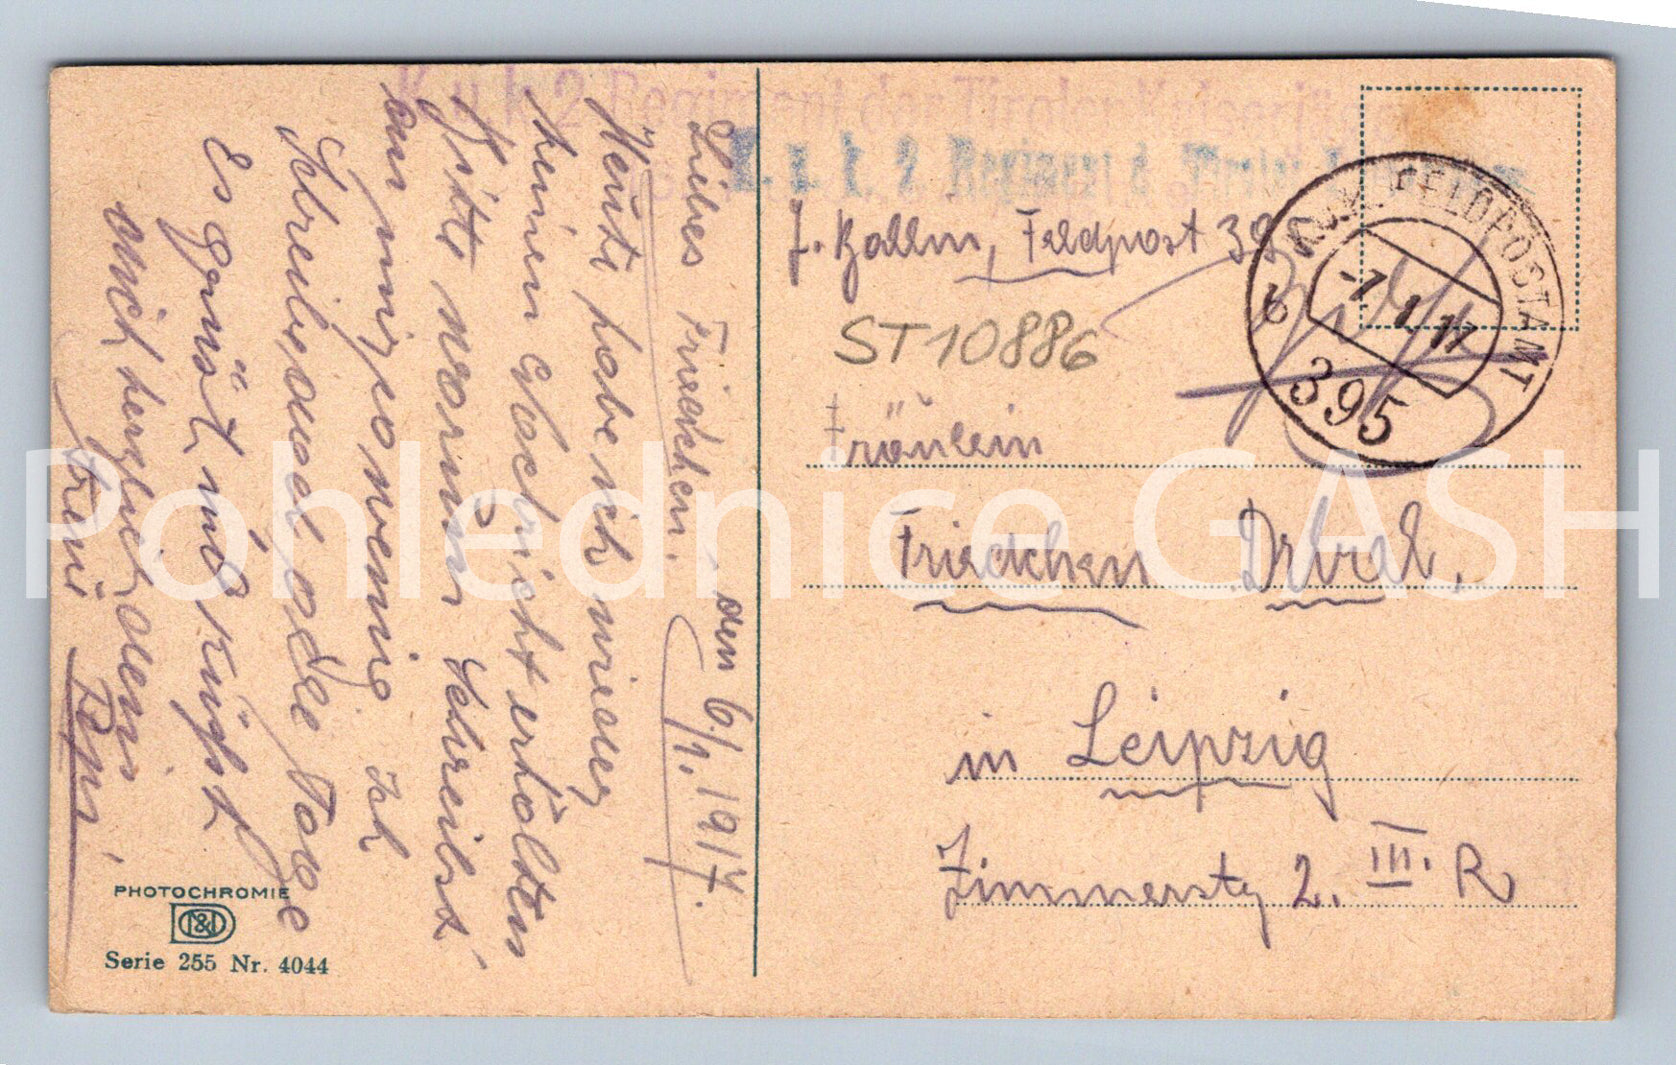 K. u. k. 2. Regiment der Tiroler Kaiserjäger
K. u. k. 2. Regiment d. Tiroler
Feldpost 39
K.u.K. FELDPOSTAMT
b
-7 1 17
395
ST10886
Fräulein
Friedchen
in Leipzig
Zimmerstr 2. III. R
den 6/1. 1917.
Liebes Friedchen.
Heute habe ich wieder
keinen Nachricht erhalten
Bitte warum schreibst
du mir so wenig Ich
Schreibe jeden Tage
Es Grüst und Küsst
dich herzlich dein
Pepi.
PHOTOCHROMIE
Serie 255 Nr. 4044
Pohlednice GASH